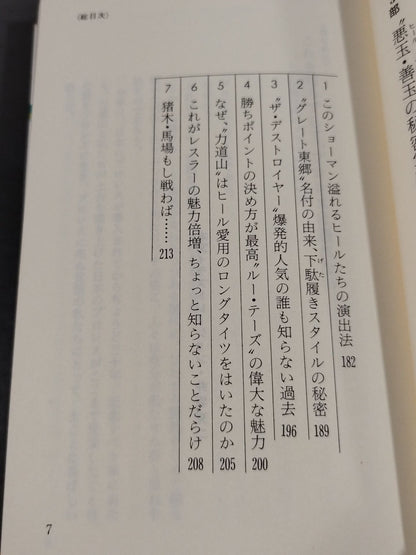 部 〝悪玉・善玉の秘密
1 このショーマン溢れるヒールたちの演出法 182
2 〝グレート東郷〟名付の由来、下駄履きスタイルの秘密 189
げた
3 〝ザ・デストロイヤー〟爆発的人気の誰も知らない過去 196
4 勝ちポイントの決め方が最高〝ルー・テーズ〟の偉大な魅力 200
5 なぜ、〝力道山〟はヒール愛用のロングタイツをはいたのか 205
6 これがレスラーの魅力倍増、ちょっと知らないことだらけ 208
7 猪木・馬場もし戦わば…… 213
〈総目次〉
7